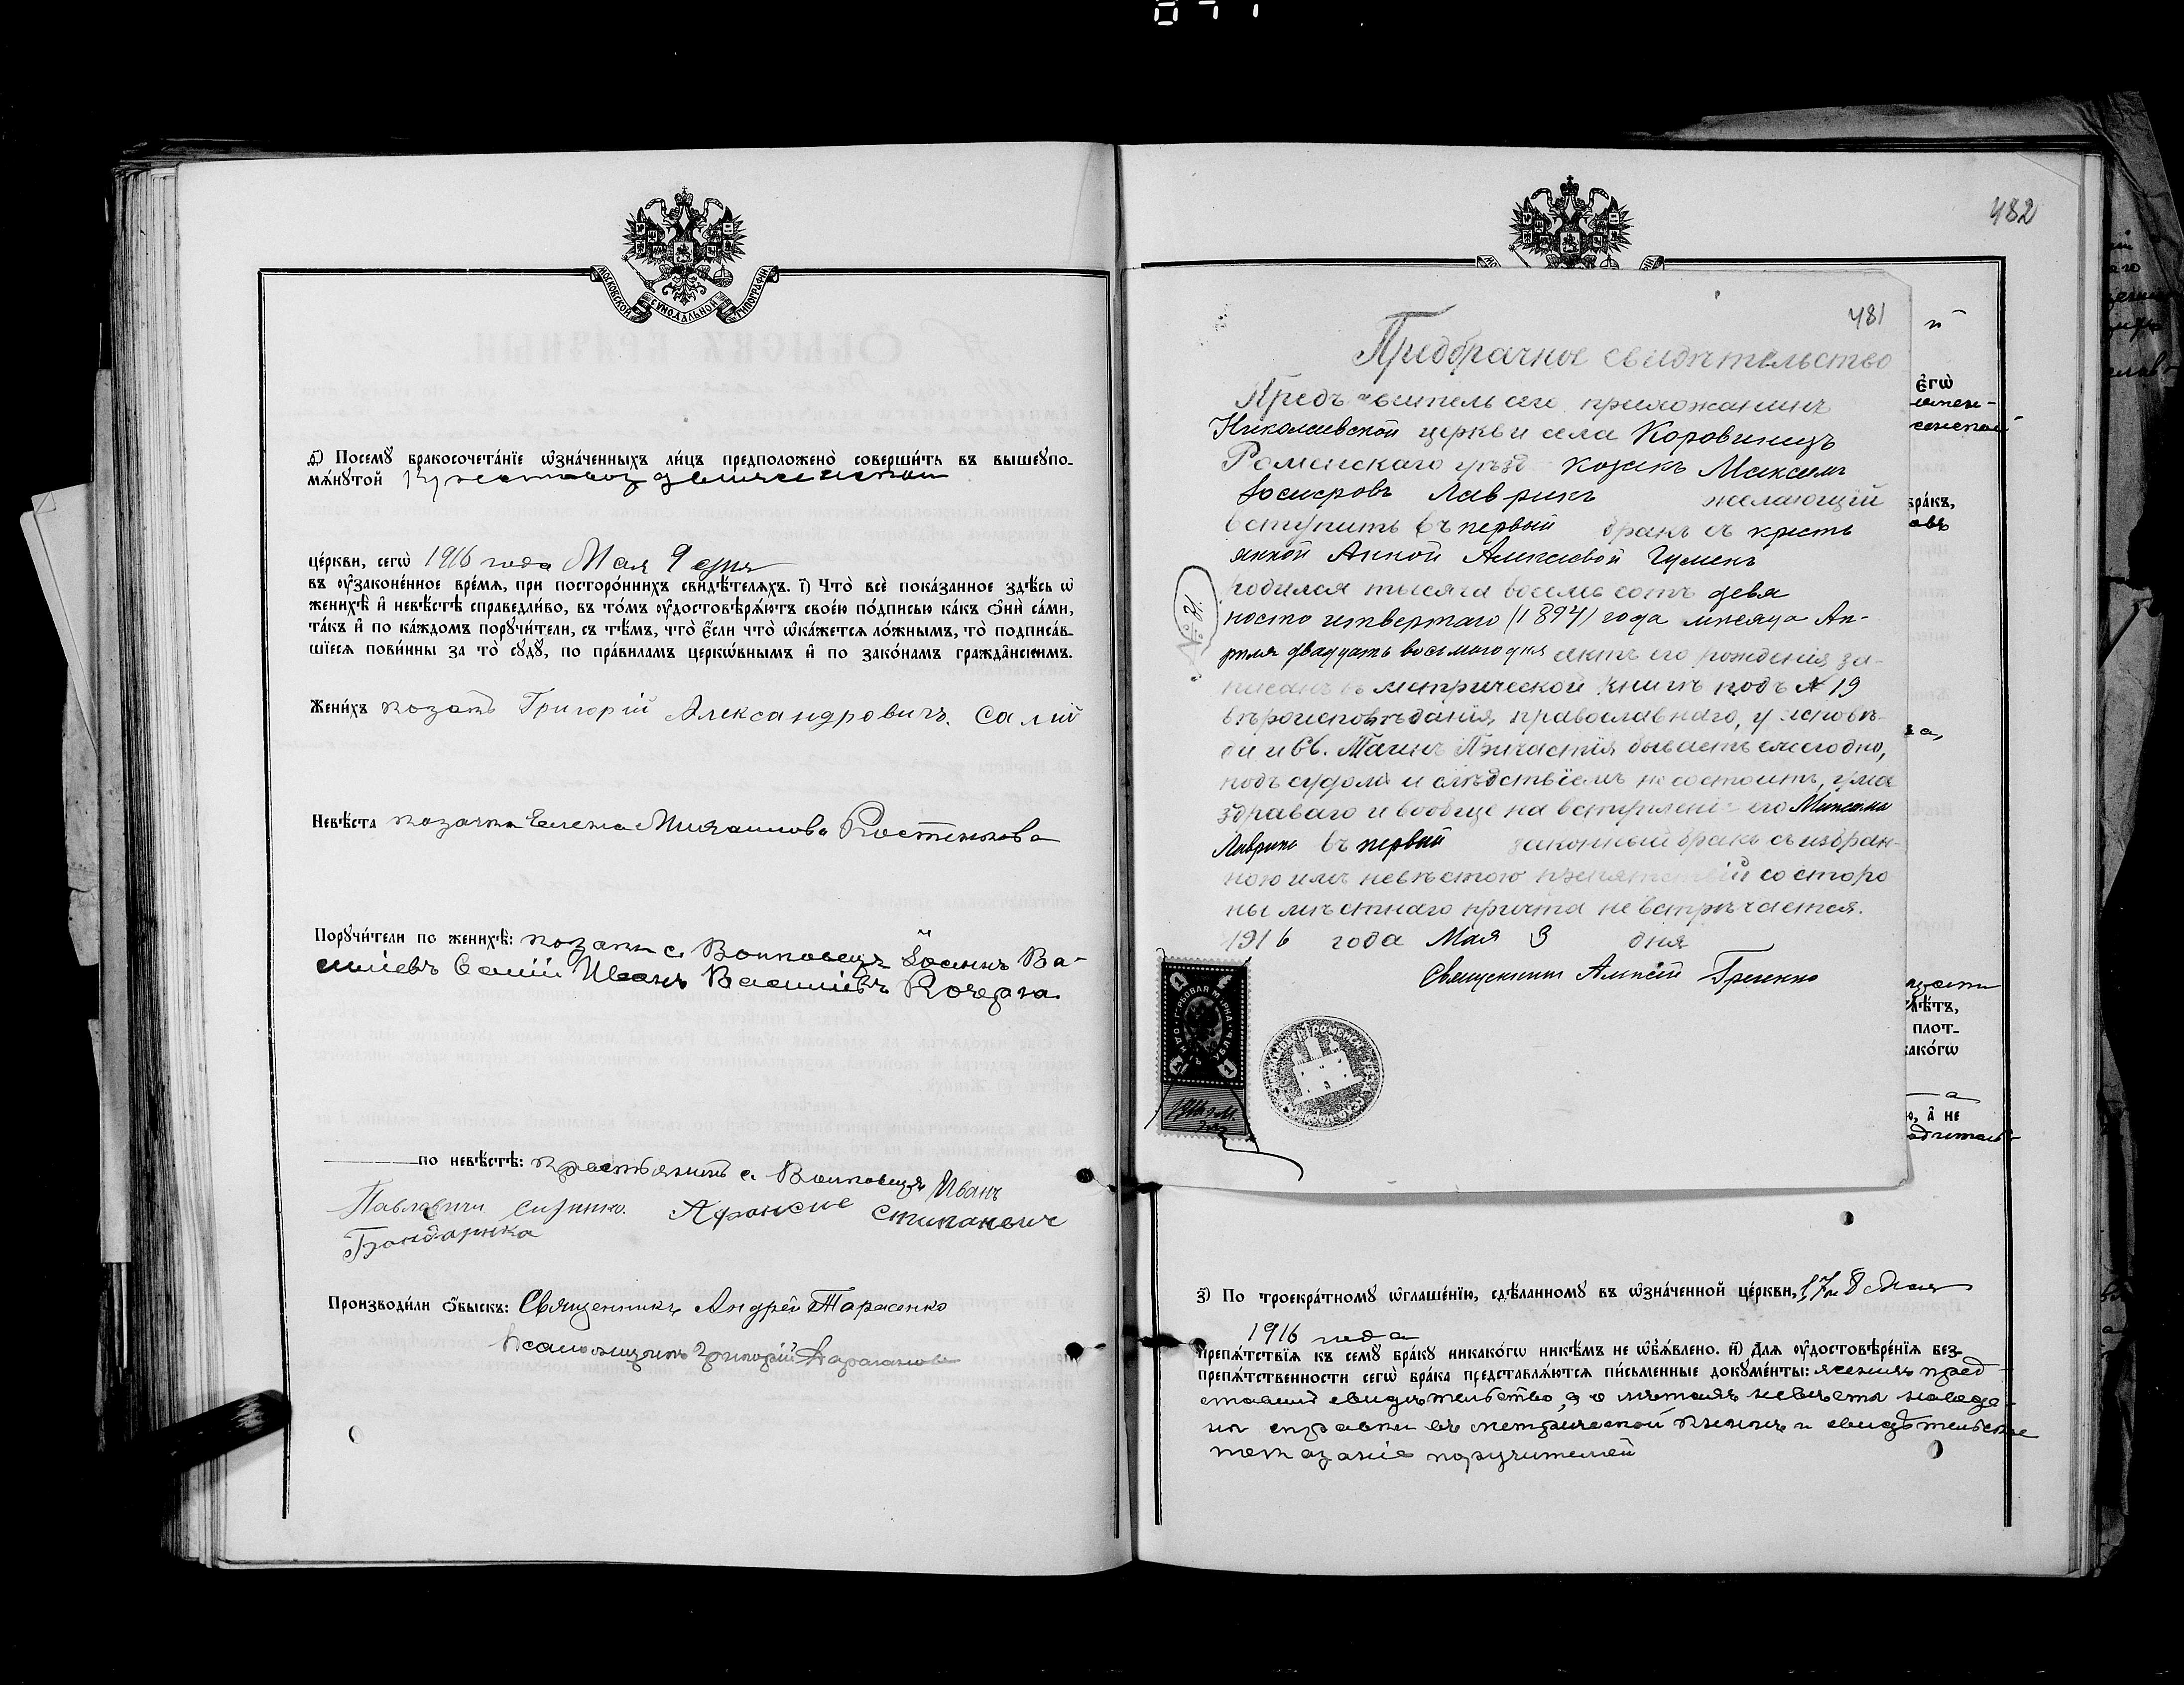 МОСКОВСКОЙ СѴНОДАЛЬНОЙ ТИПОГРАФІИ
Посемꙋ̀ бракосочета́нїе ѡ҆зна́ченныхъ ли́цъ предположено̀ соверши́ть въ вышеꙋпо-
мѧ́нꙋтой Крестовоздвиженской
це́ркви, сегѡ̀ 1916 года Мая 9 дня
въ ᲂу҆зако́ненное вре́мѧ, при посторо́ннихъ свидѣ́телѧхъ. і҃) Что̀ всѐ пока́занное здѣ́сь ѡ҆
женихѣ̀ и҆ невѣ́стѣ справедли́во, въ то́мъ ᲂу҆достовѣрѧ́ютъ свое́ю по́дписью ка́къ ѻ҆нѝ са́ми,
та́къ и҆ по ка́ждомъ порꙋчи́тели, съ тѣ́мъ, что̀ є҆́сли что̀ ѡ҆ка́жетсѧ ло́жнымъ, то̀ подписа́в-
шїесѧ пови́нны за то̀ сꙋдꙋ̀, по пра́виламъ церкѡ́внымъ и҆ по зако́намъ гражда̑нскимъ.
Жени́хъ козакъ Григорій Александровичъ Салій
Невѣ́ста козачка Елена Михаилова Костенкова
Порꙋчи́тели по женихѣ̀: козаки с. Волковецъ Іоаннъ Ва-
силіевъ Салій Иванъ Василіевъ Кочерга
по невѣ́стѣ: крестьянинъ с. Волковецъ Иванъ
Павловичъ Афонсие Стипановичь
Производи́ли ѻ҆́быскъ: Священникъ Андрей Тарасенко
Псаломщикъ Григорій
482
481
Предбрачное свидѣтельство
Предъявитель сего прихожанинъ
Николаевской церкви села Коровинецъ
Роменскаго уѣзд козакъ Максимъ
Іосифовъ Лаврикъ желающій
вступить въ первый бракъ съ кресть
янкой Анной Алексіевой Гуменъ
родился тысяча восемь сотъ девя
носто четвертаго (1894) года мѣсяца Ап-
рѣля двадцать восьмого дня актъ его рожденія за-
писанъ въ метрической книгѣ подъ № 19
вѣроисповѣданія православнаго, у исповѣ-
ди и Св. Таинъ Причастія бываетъ ежегодно,
подъ судомъ и слѣдствіемъ не состоитъ, ума
здраваго и вообще на вступленіе его Максима
Лаврика въ первый законный бракъ съ избран-
ною имъ невѣстою препятствій со сторо
ны мѣстнаго причта не встрѣчается.
1916 года Мая 3 дня
Священникъ Алексій
ГЕРБОВАЯ МАРКА
ОДИНЪ РУБЛЬ
1
є҆гѡ̀
бра́къ,
лѣ́тъ,
плот-
како́гѡ
ю, а҆ не
з҃) По троекра́тномꙋ ѡ҆глаше́нїю, сдѣ́ланномꙋ въ ѡ҆зна́ченной це́ркви, 1, 7 и 8 Мая
1916 года
препѧ́тствїѧ къ семꙋ̀ бра́кꙋ никако́гѡ никѣ́мъ не ѡ҆б̾ѧ́влено. и҃) Длѧ ᲂу҆достовѣре́нїѧ без-
препѧ́тственности сегѡ̀ бра́ка представлѧ́ютсѧ пи́сьменные докꙋме́нты: женихъ пред-
ставилъ свидѣтельство, а о лѣтахъ невѣсты наведе-
ны справки въ метрической книгѣ и свидѣтельское
показаніе поручителей